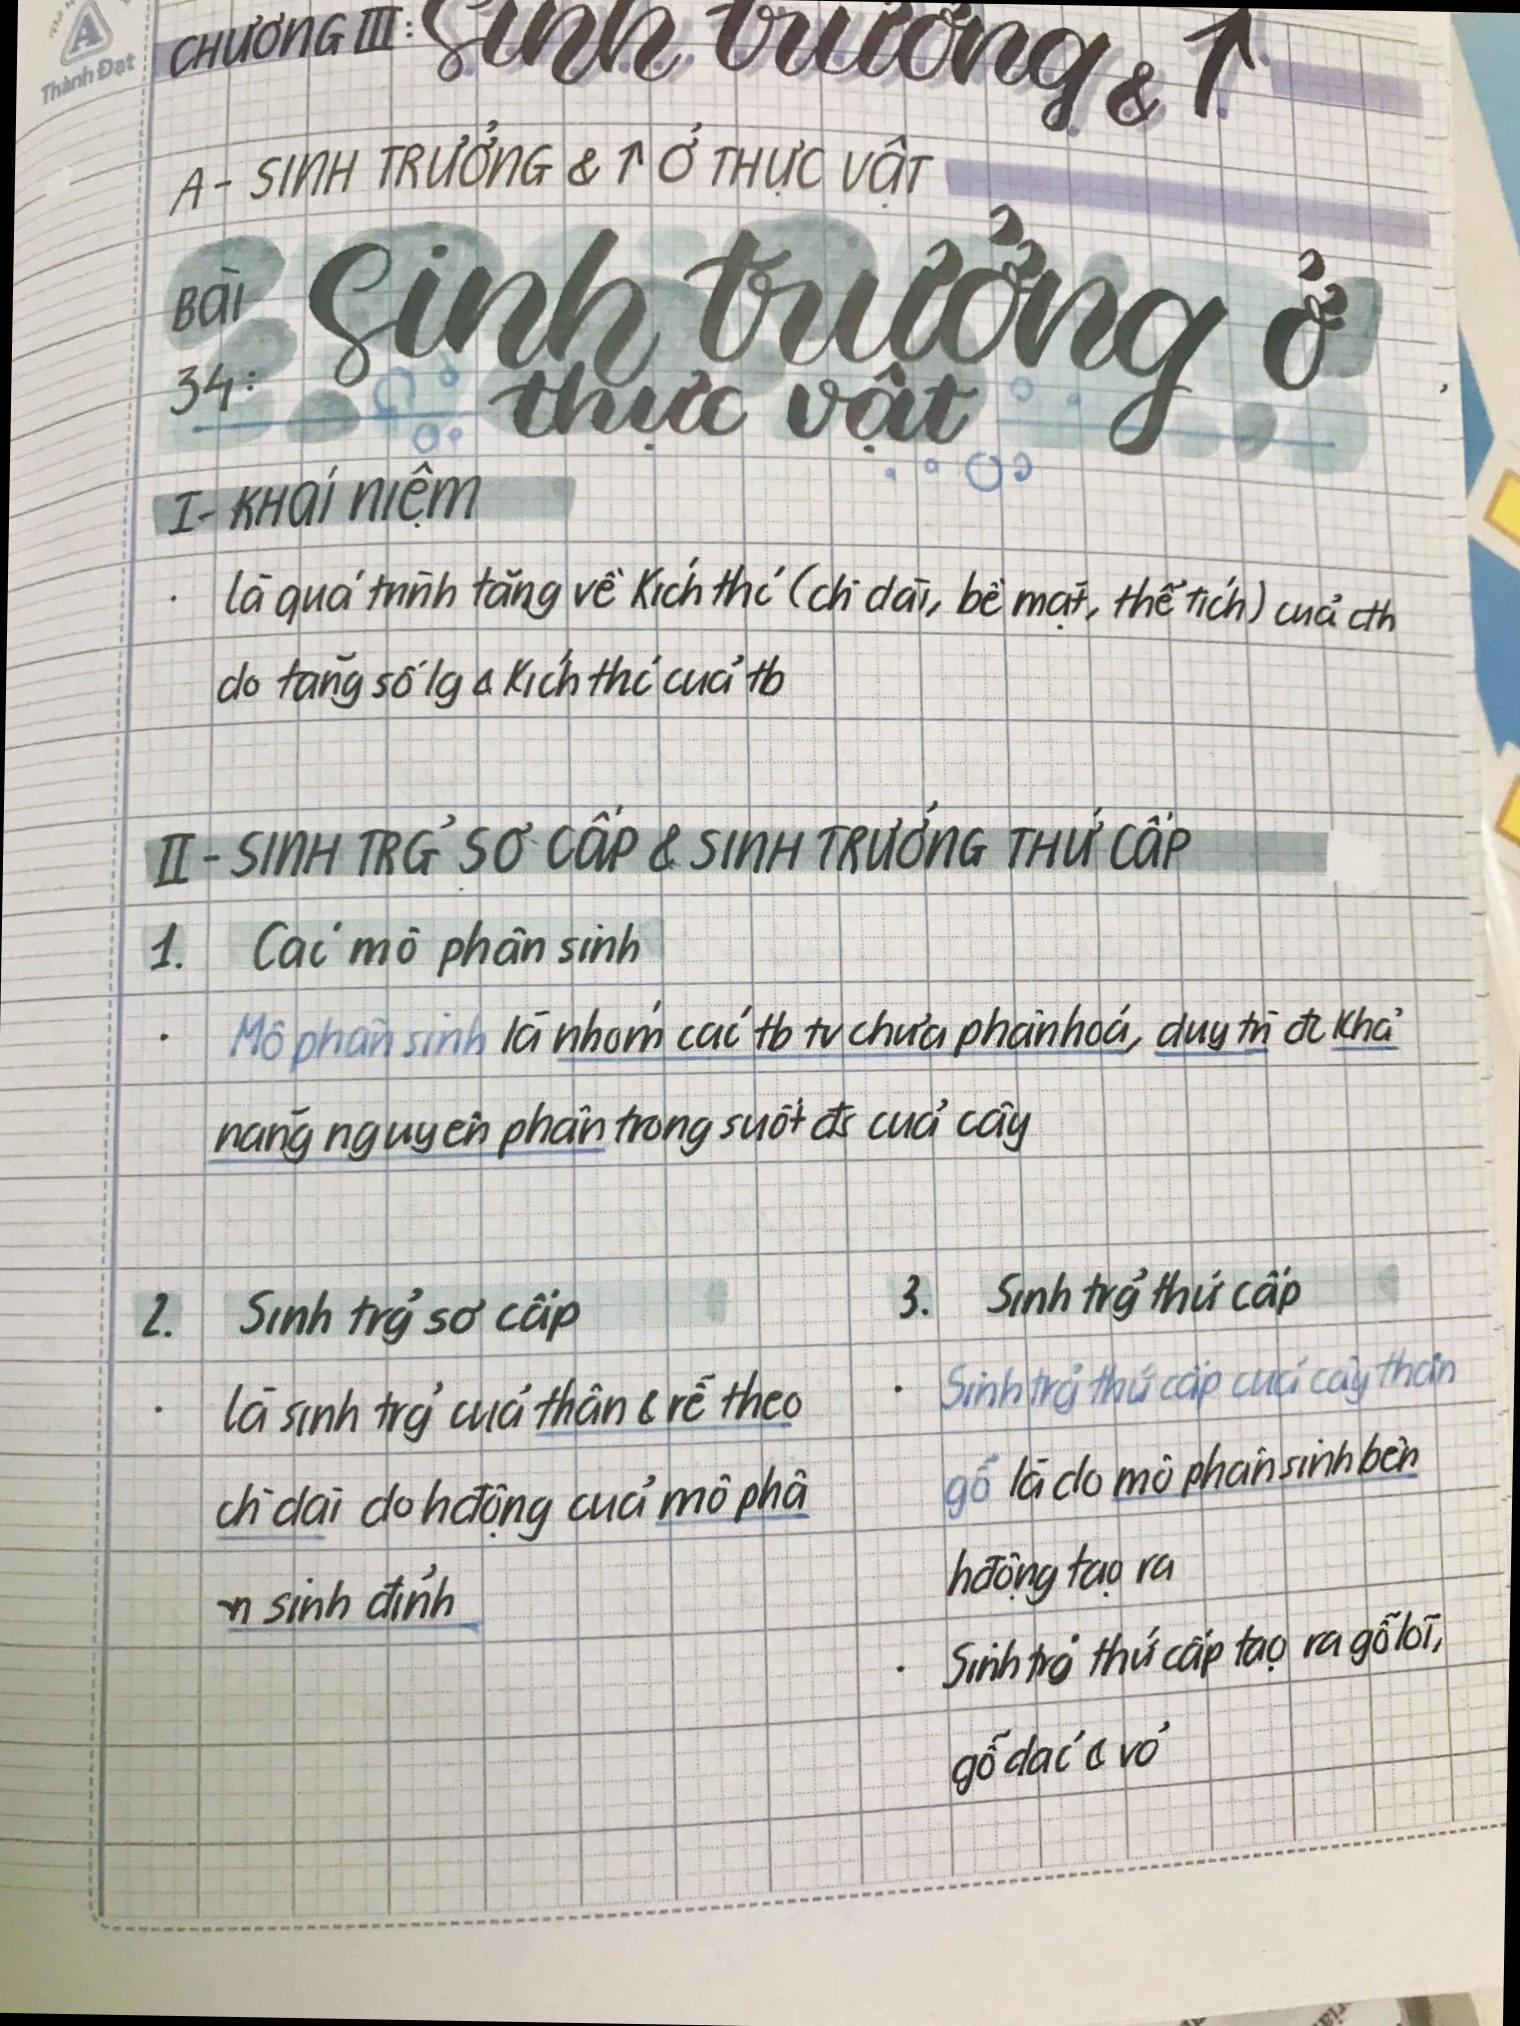 Thành Đạt
CHƯƠNG III: Sinh trưởng & ↑
A - SINH TRƯỞNG & ↑ Ở THỰC VẬT
BÀI 34: Sinh trưởng ở
thực vật
I - KHÁI NIỆM
· là quá trình tăng về kích thc (ch dài, bề mặt, thể tích) của cth
do tăng số lg & kích thc của tb
II - SINH TRG̉ SƠ CẤP & SINH TRƯỞNG THỨ CẤP
1. Các mô phân sinh
· Mô phân sinh là nhóm các tb tv chưa phân hoá, duy trì đc khả
năng nguyên phân trong suốt đs của cây
2. Sinh trg̉ sơ cấp
· là sinh trg̉ của thân & rễ theo
ch dài do hđộng của mô phâ
n sinh đỉnh
3. Sinh trg̉ thứ cấp
· Sinh trg̉ thứ cấp của cây thân
gỗ là do mô phân sinh bên
hđộng tạo ra
· Sinh trg̉ thứ cấp tạo ra gỗ lõi,
gỗ dác & vỏ